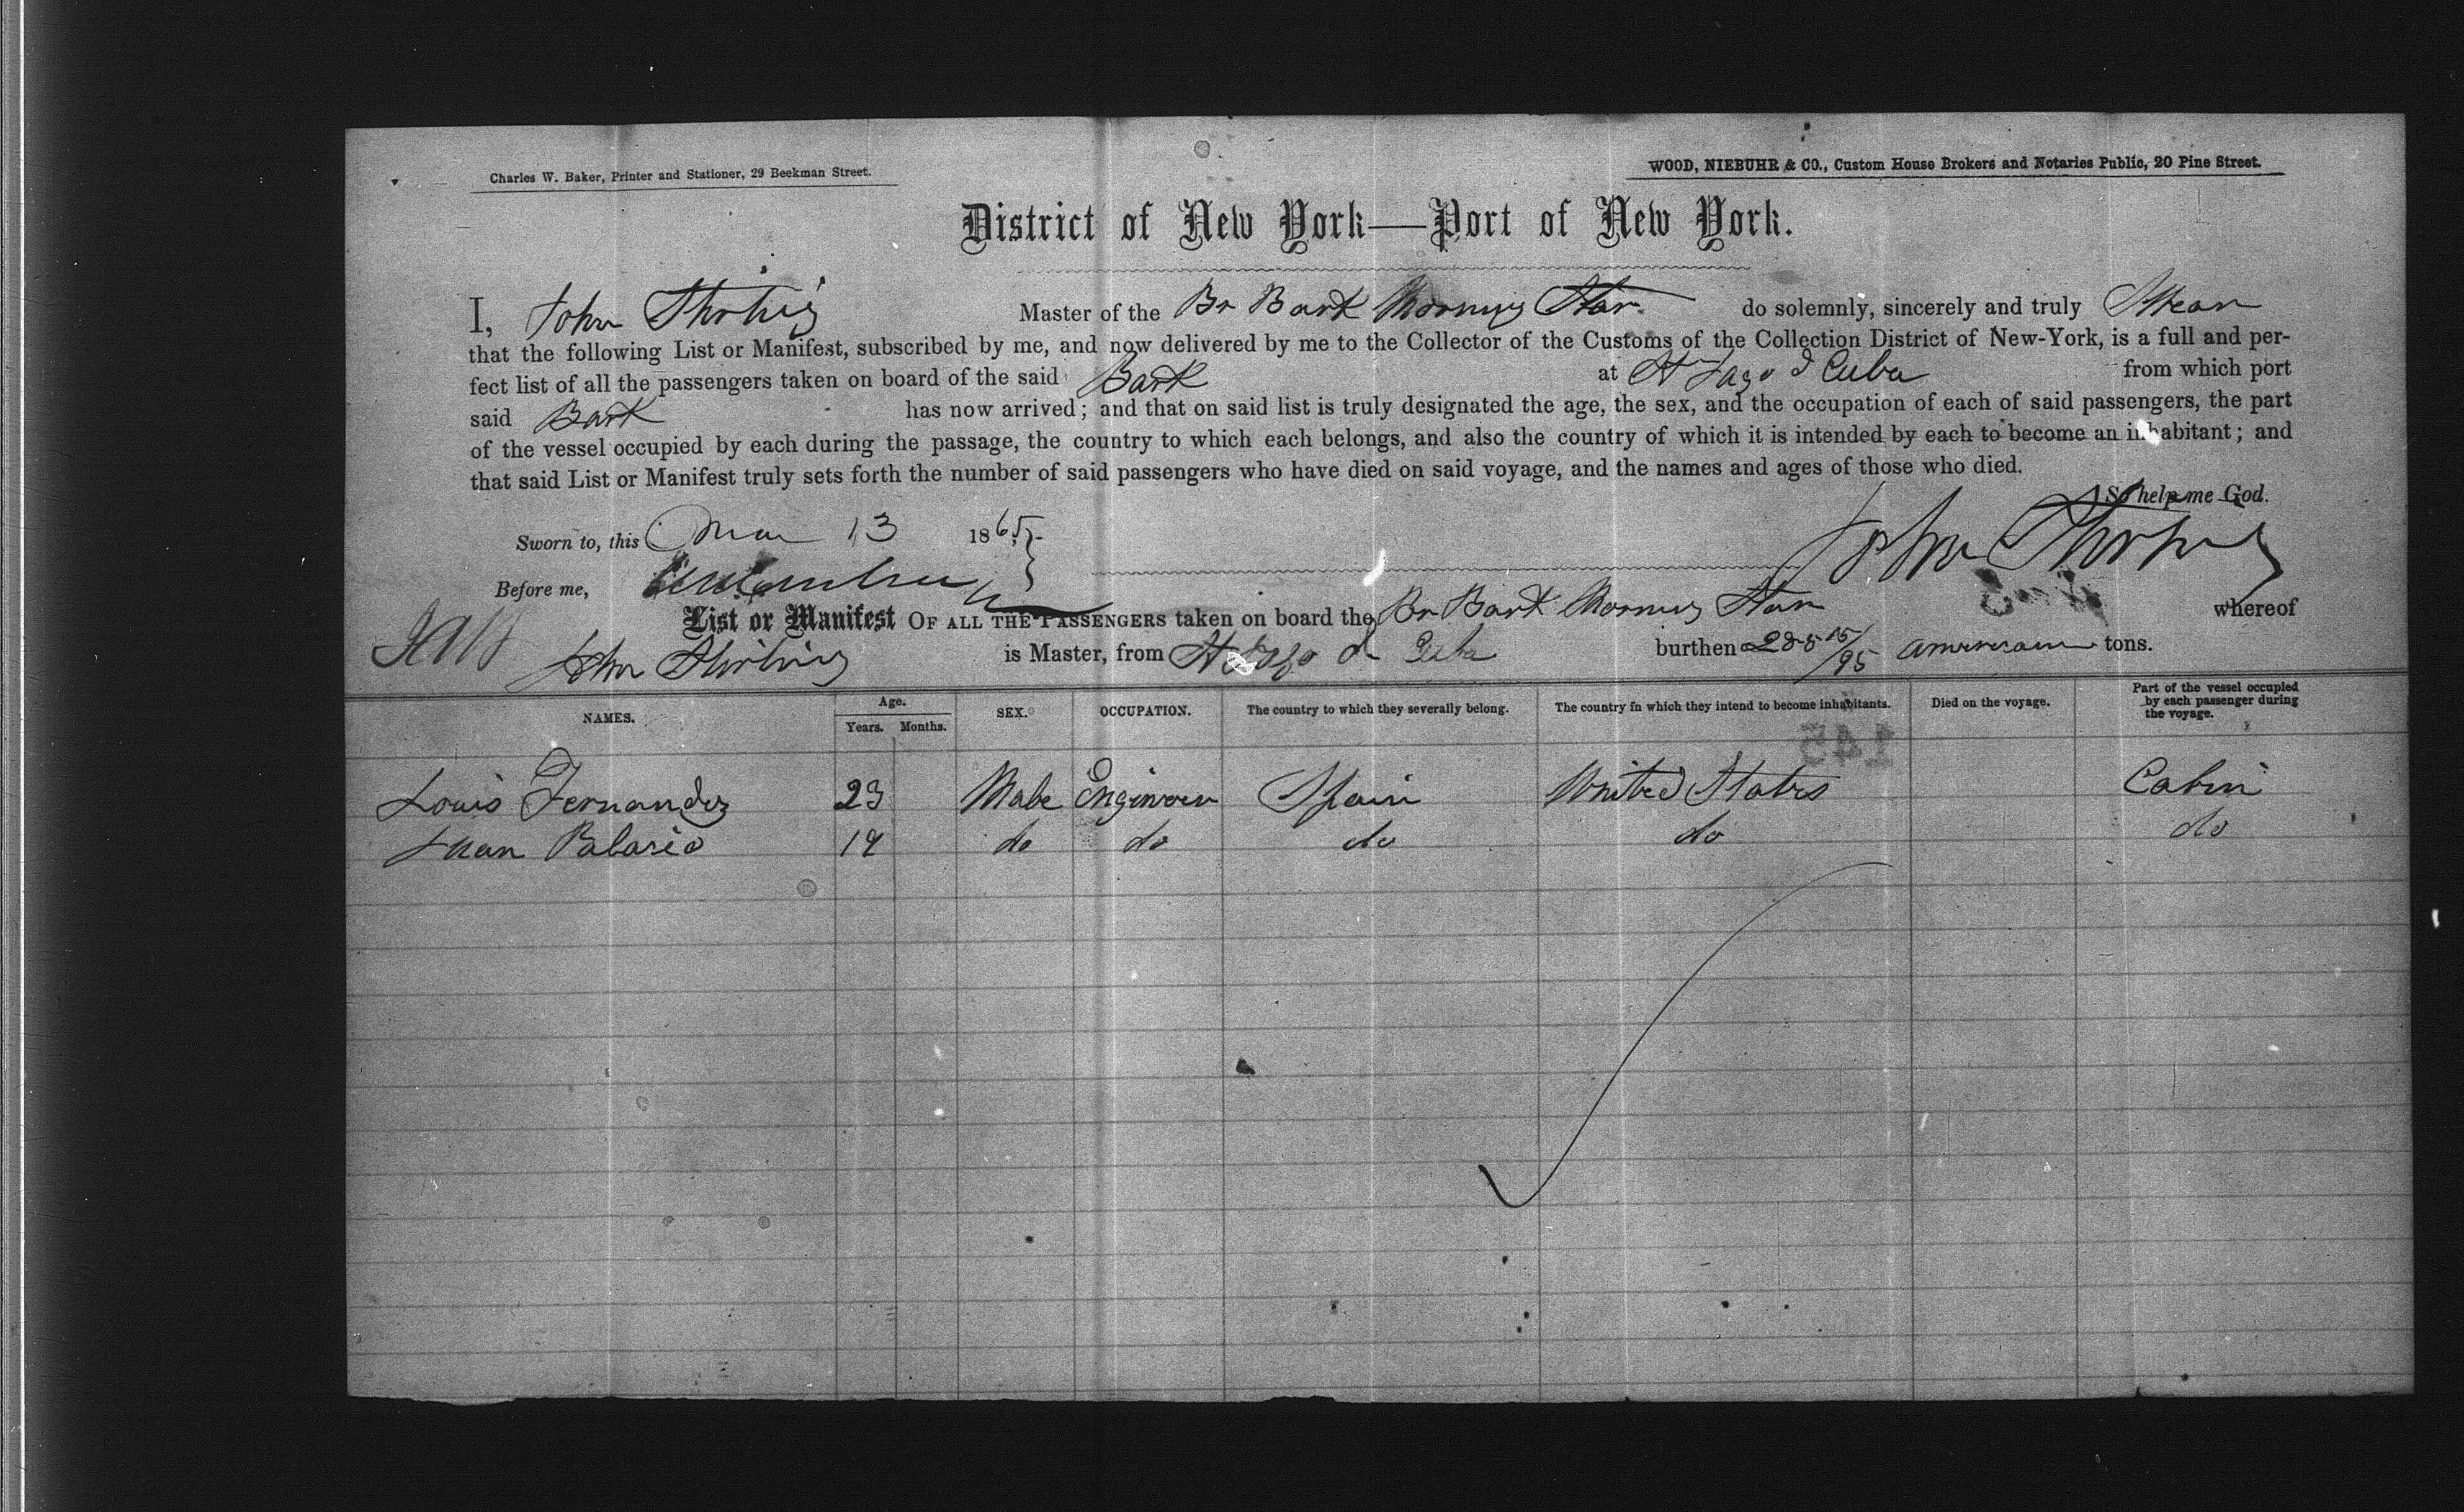 Charles W. Baker, Printer and Stationer, 29 Beekman Street.
WOOD, NIEBUHR & CO., Custom House Brokers and Notaries Public, 20 Pine Street.
District of New York—Port of New York.
I, John Master of the Br Bark Morning Star do solemnly, sincerely and truly Swear
that the following List or Manifest, subscribed by me, and now delivered by me to the Collector of the Customs of the Collection District of New-York, is a full and per-
fect list of all the passengers taken on board of the said Bark at St Jago d Cuba from which port
said Bark has now arrived; and that on said list is truly designated the age, the sex, and the occupation of each of said passengers, the part
of the vessel occupied by each during the passage, the country to which each belongs, and also the country of which it is intended by each to become an inhabitant; and
that said List or Manifest truly sets forth the number of said passengers who have died on said voyage, and the names and ages of those who died.
So help me God.
Sworn to, this Mar 13 1865
John
Before me,
List or Manifest OF ALL THE PASSENGERS taken on board the Br Bark Morning Star whereof
John is Master, from St Jago d Cuba burthen 285 15/95 american tons.
NAMES. Age. Years. Months. SEX. OCCUPATION. The country to which they severally belong. The country in which they intend to become inhabitants. Died on the voyage. Part of the vessel occupied by each passenger during the voyage.
145
Louis Fernandez 23 Male Engineer Spain United States Cabin
Juan Palasio 19 do do do do do